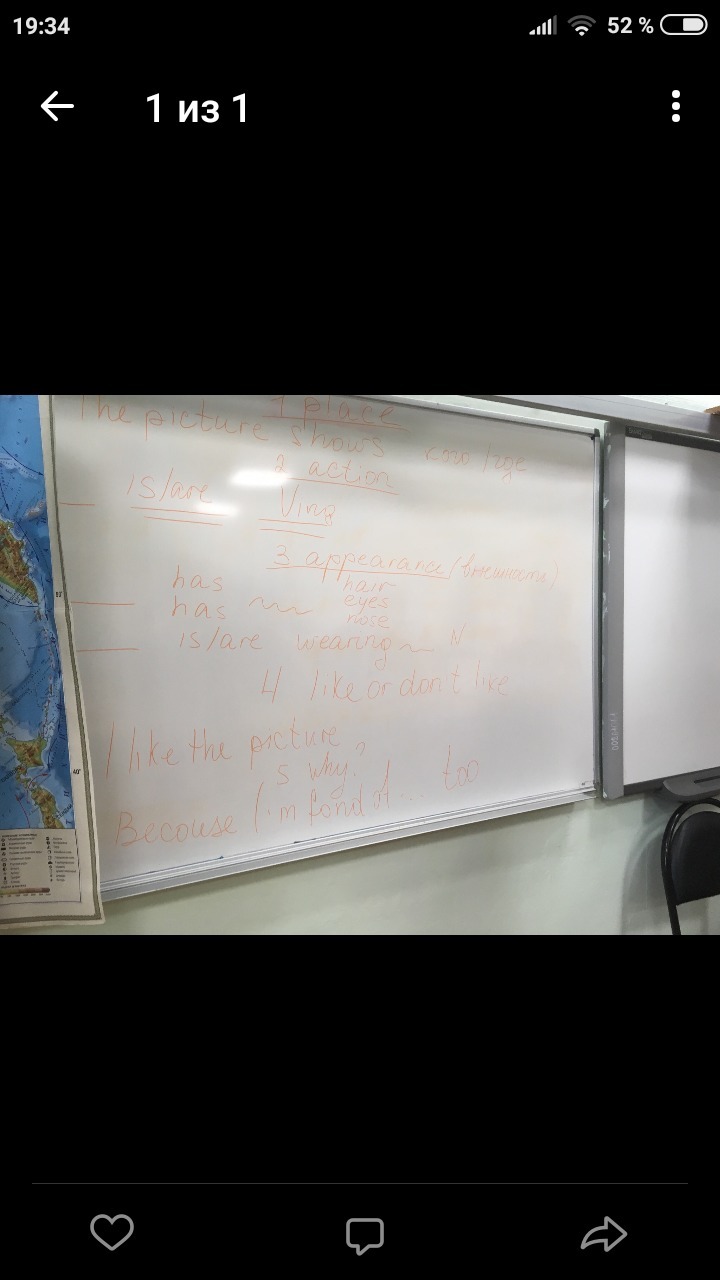 19:34
52 %
1 из 1
1 place
The picture shows кого/где
2 action
is/are Ving
3 appearance (внешность)
has hair
has eyes
nose
is/are wearing N
4 like or don't like
I like the picture,
5 why?
Becouse I'm fond of... too